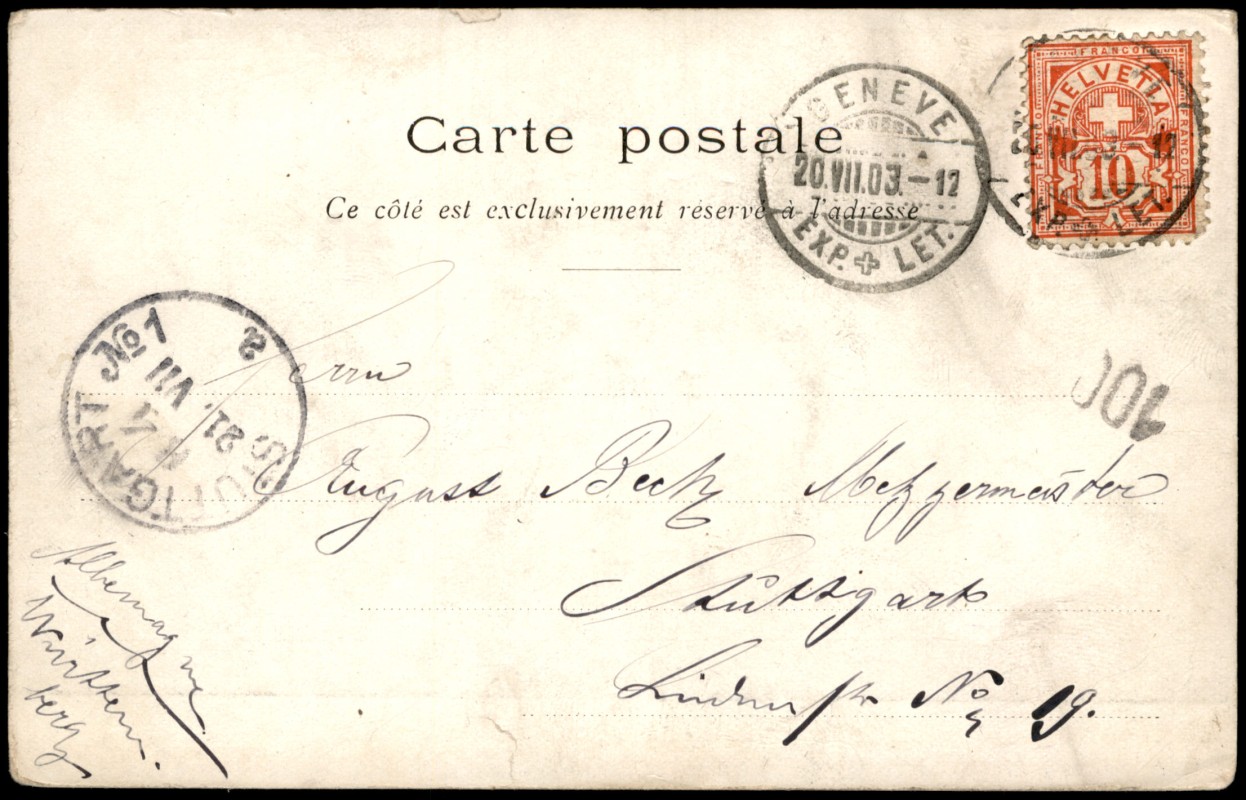 FRANCO
HELVETIA
FRANCO
FRANCO
10
GENÈVE
20.VII.03.-12
EXP. + LET.
Carte postale
Ce côté est exclusivement réservé à l'adresse
STUTTGART No 1
21. VII
Herrn
August Beck Metzgermeister
Stuttgart
Lindenstr No 19.
Allemagne
Württem
berg
100